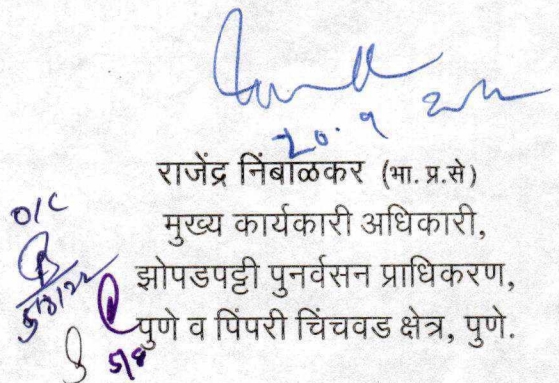 राजेंद्र निंबाळकर (भा. प्र.से)
मुख्य कार्यकारी अधिकारी,
झोपडपट्टी पुनर्वसन प्राधिकरण,
पुणे व पिंपरी चिंचवड क्षेत्र, पुणे.
O/C